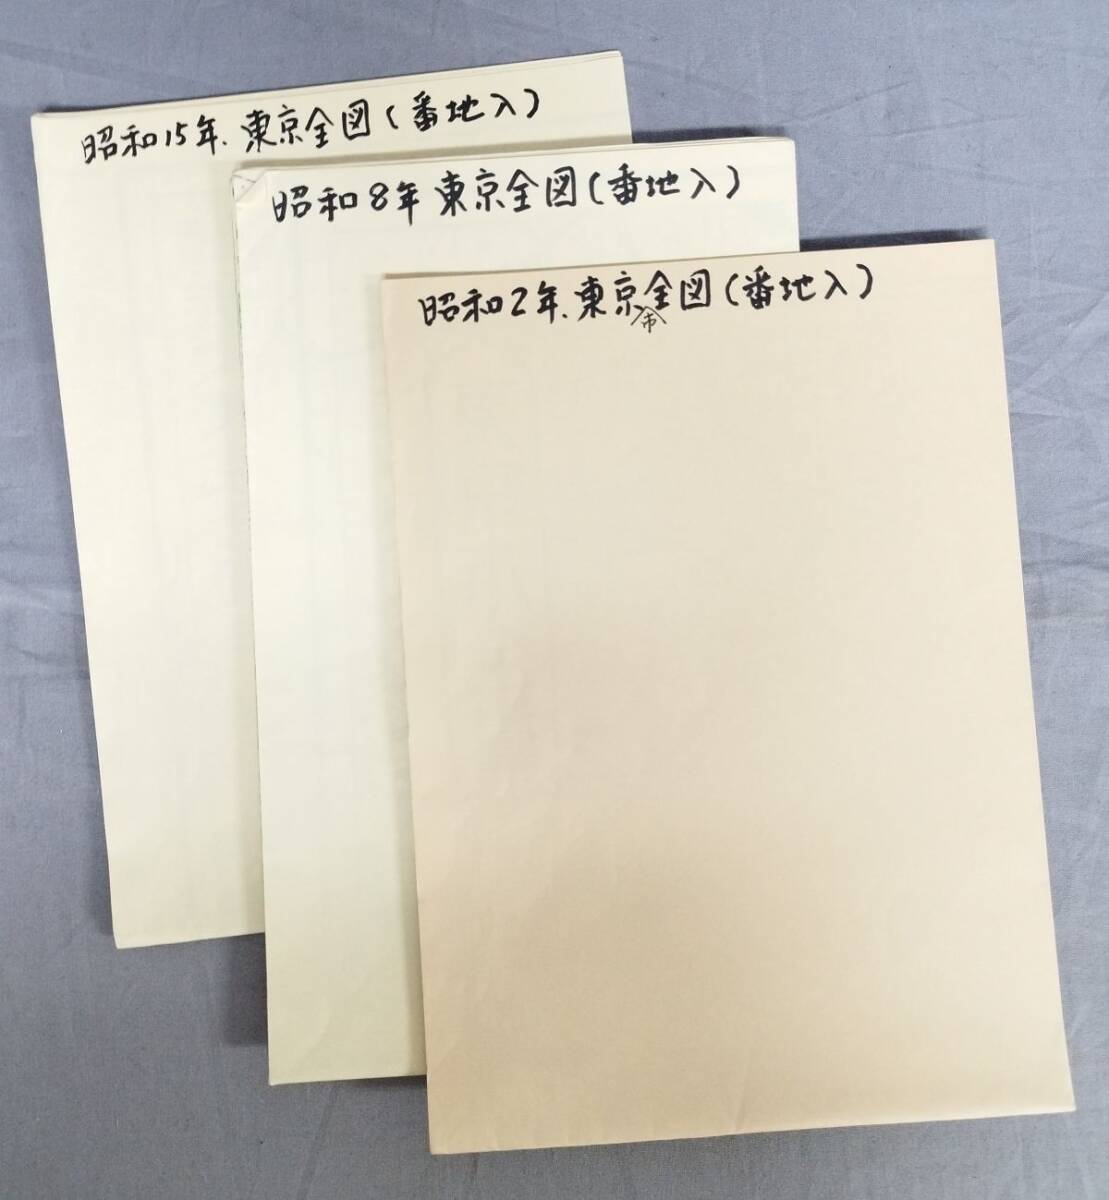 昭和15年.東京全図(番地入)
昭和8年 東京全図(番地入)
昭和2年.東京市全図(番地入)